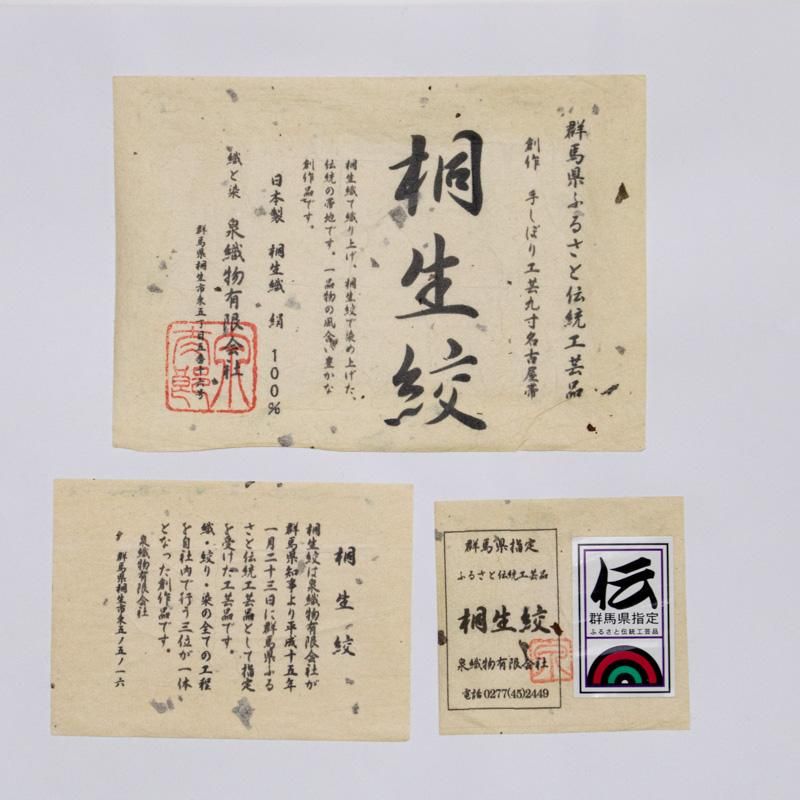 群馬県ふるさと伝統工芸品
創作 手しぼり工芸九寸名古屋帯
桐生絞
桐生織で織り上げ、桐生絞で染め上げた、
伝統の帯地です。一品物の風合い豊かな
創作品です。
日本製 桐生織 絹 100%
織と染 泉織物有限会社
群馬県桐生市東五丁目五番十六号
桐生絞
桐生絞は泉織物有限会社が
群馬県知事より平成十五年
一月二十三日に群馬県ふる
さと伝統工芸品として指定
を受けた工芸品です。
織・絞り・染の全ての工程
を自社内で行う三位が一体
となった創作品です。
泉織物有限会社
群馬県桐生市東五ノ五ノ一六
群馬県指定
ふるさと伝統工芸品
桐生絞
泉織物有限会社
電話0277(45)2449
伝
群馬県指定
ふるさと伝統工芸品